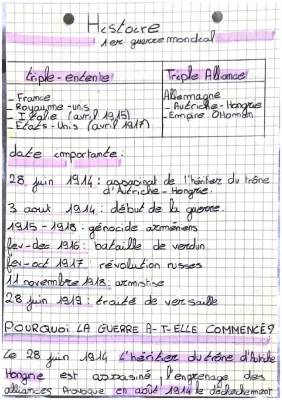 Histoire
1er guerre mondial
triple-entente
Triple Alliance
- France
- Royaume-unis
- Italie (avril 1915)
- États-Unis (avril 1917)
Allemagne
- Autriche-Hongrie
- Empire Ottoman
date importante :
28 juin 1914 : assasinat de l'héritier du trône
d'Autriche-Hongrie.
3 aout 1914 : début de la guerre
1915-1918 : génocide arméniens
fev-dec 1916 : bataille de verdun
fev-oct 1917 : révolution russes
11 novembre 1918 : armistise
28 juin 1919 : traité de versaille
POURQUOI LA GUERRE A-T-ELLE COMMENCÉ?
Le 28 juin 1914 l'héritier du trône d'Autriche
Hongrie est assasiné l'engrenage des
alliances provoque en août 1914 le déclenchement